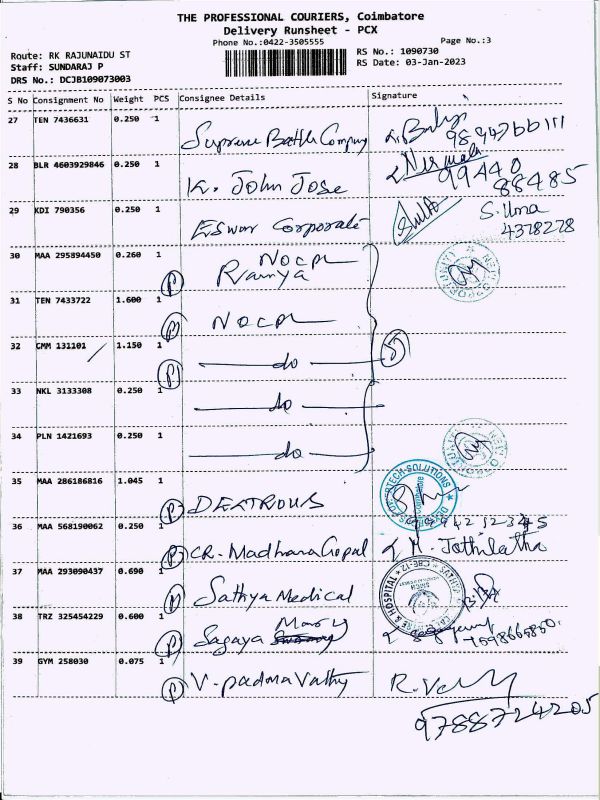 THE PROFESSIONAL COURIERS, Coimbatore
Delivery Runsheet - PCX
Phone No.:0422-3505555
Page No.:3
Route: RK RAJUNAIDU ST
Staff: SUNDARAJ P
DRS No.: DCJB109073003
RS No.: 1090730
RS Date: 03-Jan-2023
S No Consignment No Weight PCS Consignee Details Signature
27 TEN 7436631 0.250 1 Supreme Battle Company
28 BLR 4603929846 0.250 1 K. John Jose Nirmala 99440 88485
29 KDI 790356 0.250 1 Eswar Corporate S. Uma 4378278
30 MAA 295894450 0.260 1 P NOCPL Ramya
31 TEN 7433722 1.600 1 P NOCPL
32 CMM 131101 1.150 1 P do 5
33 NKL 3133308 0.250 1 do
34 PLN 1421693 0.250 1 do
35 MAA 286186816 1.045 1 P DEXTROUS
36 MAA 568190062 0.250 1 P CR. Madhana Gopal M. Jothilatha
37 MAA 293090437 0.690 1 P Sathya Medical
38 TRZ 325454229 0.600 1 P Sagaya Mary
39 GYM 258030 0.075 1 P V. padma Vathy 9788724205